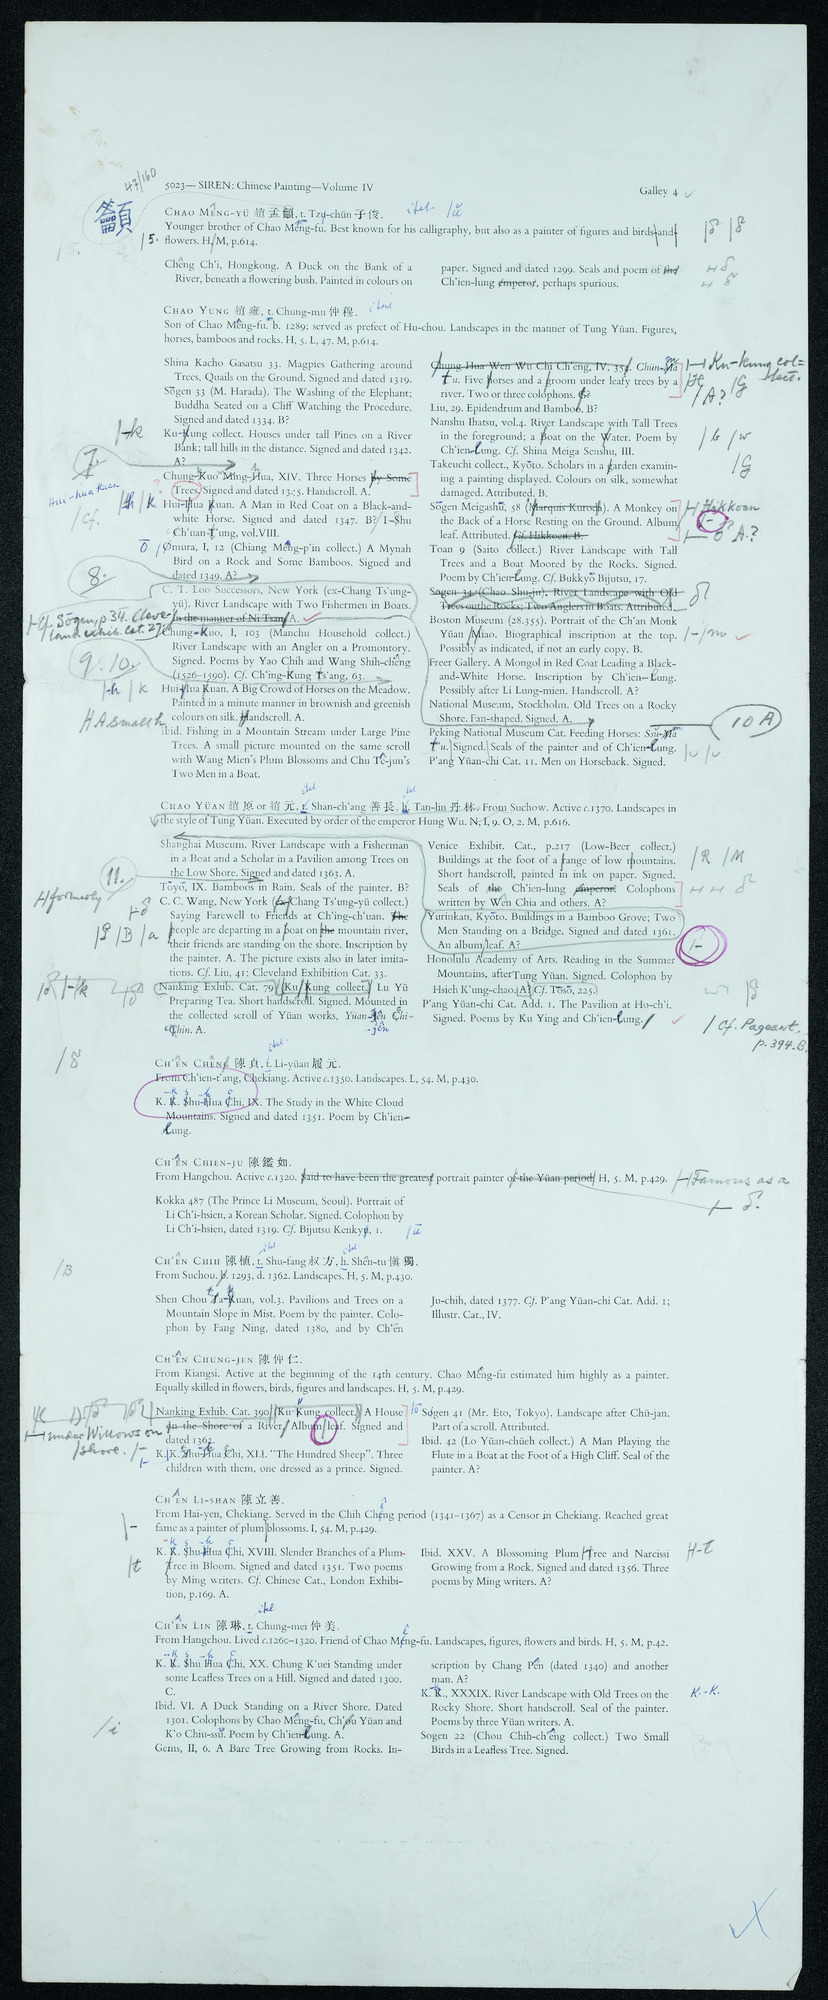 47/160
5023— SIREN: Chinese Painting—Volume IV
Galley 4
籲
CHAO MÊNG-YÜ 趙孟籲, t. Tzŭ-chün 子俊.
ital.
Younger brother of Chao Mêng-fu. Best known for his calligraphy, but also as a painter of figures and birds and
flowers. H, M, p.614.
5.
Chêng Ch'i, Hongkong. A Duck on the Bank of a
River, beneath a flowering bush. Painted in colours on
paper. Signed and dated 1299. Seals and poem of the
Ch'ien-lung emperor, perhaps spurious.
CHAO YUNG 趙雍, t. Chung-mu 仲穆.
ital
Son of Chao Mêng-fu. b. 1289; served as prefect of Hu-chou. Landscapes in the manner of Tung Yüan. Figures,
horses, bamboos and rocks. H, 5. L, 47. M, p.614.
Shina Kacho Gasatsu 33. Magpies Gathering around
Trees, Quails on the Ground. Signed and dated 1319.
Sōgen 33 (M. Harada). The Washing of the Elephant;
Buddha Seated on a Cliff Watching the Procedure.
Signed and dated 1334. B?
Ku-Kung collect. Houses under tall Pines on a River
Bank; tall hills in the distance. Signed and dated 1342.
A?
7.
Chung-Kuo Ming-Hua, XIV. Three Horses by Some
Trees. Signed and dated 1345. Handscroll. A.
Hui-hua Kuan
/Cf.
Hui-Hua Kuan. A Man in Red Coat on a Black-and-
white Horse. Signed and dated 1347. B? I-Shu
Ch'uan-T'ung, vol.VIII.
Ōmura, I, 12 (Chiang Mêng-p'in collect.) A Mynah
Bird on a Rock and Some Bamboos. Signed and
dated 1349. A?
8.
C. T. Loo Successors, New York (ex-Chang Ts'ung-
yü). River Landscape with Two Fishermen in Boats.
In the manner of Ni Tsan. A.
Cf. Sōgen, p 34. Cleve-
land exhib. Cat. 27
Chung-Kuo, I, 103 (Manchu Household collect.)
River Landscape with an Angler on a Promontory.
Signed. Poems by Yao Chih and Wang Shih-chêng
(1526–1590). Cf. Ch'ing-Kung Ts'ang, 63.
9. 10.
Hui-Hua Kuan. A Big Crowd of Horses on the Meadow.
Painted in a minute manner in brownish and greenish
colours on silk. Handscroll. A.
A small h
Ibid. Fishing in a Mountain Stream under Large Pine
Trees. A small picture mounted on the same scroll
with Wang Mien's Plum Blossoms and Chu Tê-jun's
Two Men in a Boat.
Chung Hua Wen Wu Chi Ch'eng, IV, 354. Chün-Ma
T'u. Five horses and a groom under leafy trees by a
river. Two or three colophons. B?
Ku-kung col-
lect.
A?
Liu, 29. Epidendrum and Bamboo. B?
Nanshu Ihatsu, vol.4. River Landscape with Tall Trees
in the foreground; a Boat on the Water. Poem by
Ch'ien-lung. Cf. Shina Meiga Senshu, III.
Takeuchi collect., Kyōto. Scholars in a garden examin-
ing a painting displayed. Colours on silk, somewhat
damaged. Attributed. B.
Sōgen Meigashū, 58 (Marquis Kuroda). A Monkey on
the Back of a Horse Resting on the Ground. Album
leaf. Attributed. Cf. Hikkoen. B.
Hikkoen
A.?
Toan 9 (Saito collect.) River Landscape with Tall
Trees and a Boat Moored by the Rocks. Signed.
Poem by Ch'ien-lung. Cf. Bukkyō Bijutsu, 17.
Sogen 34 (Chao Shu-ju). River Landscape with Old
Trees on the Rocks; Two Anglers in Boats. Attributed.
Boston Museum (28.355). Portrait of the Ch'an Monk
Yüan Miao. Biographical inscription at the top.
Possibly as indicated, if not an early copy. B.
Freer Gallery. A Mongol in Red Coat Leading a Black-
and-White Horse. Inscription by Ch'ien-Lung.
Possibly after Li Lung-mien. Handscroll. A?
National Museum, Stockholm. Old Trees on a Rocky
Shore. Fan-shaped. Signed. A.
10 A
Peking National Museum Cat. Feeding Horses: Ssŭ-Ma
T'u. Signed. Seals of the painter and of Ch'ien-Lung.
P'ang Yüan-chi Cat. 11. Men on Horseback. Signed.
ital ital
CHAO YÜAN 趙原 or 趙元, t. Shan-ch'ang 善長, h. Tan-lin 丹林. From Suchow. Active c.1370. Landscapes in
the style of Tung Yüan. Executed by order of the emperor Hung Wu. N, I, 9. O, 2. M, p.616.
Shanghai Museum. River Landscape with a Fisherman
in a Boat and a Scholar in a Pavilion among Trees on
the Low Shore. Signed and dated 1363. A.
11.
Tōyō, IX. Bamboos in Rain. Seals of the painter. B?
formerly
C. C. Wang, New York (ex-Chang Ts'ung-yü collect.)
Saying Farewell to Friends at Ch'ing-ch'uan. The
people are departing in a boat on the mountain river,
their friends are standing on the shore. Inscription by
the painter. A. The picture exists also in later imita-
tions. Cf. Liu, 41; Cleveland Exhibition Cat. 33.
Nanking Exhib. Cat. 79 (Ku Kung collect.) Lu Yü
Preparing Tea. Short handscroll. Signed. Mounted in
the collected scroll of Yüan works, Yüan-Jên Chi-
Chin. A.
-jên
Venice Exhibit. Cat., p.217 (Low-Beer collect.)
Buildings at the foot of a range of low mountains.
Short handscroll, painted in ink on paper. Signed.
Seals of the Ch'ien-lung emperor. Colophons
written by Wên Chia and others. A?
Yurinkan, Kyoto. Buildings in a Bamboo Grove; Two
Men Standing on a Bridge. Signed and dated 1361.
An album leaf. A?
Honolulu Academy of Arts. Reading in the Summer
Mountains, after Tung Yüan. Signed. Colophon by
Hsieh K'ung-chao. A? Cf. Tōsō, 225.
P'ang Yüan-chi Cat. Add. 1. The Pavilion at Ho-ch'i.
Signed. Poems by Ku Ying and Ch'ien-Lung.
/ Cf. Pageant,
p.394.B.
ital
CH'ÊN CHÊNG 陳貞, t. Li-yüan 履元.
From Ch'ien-t'ang, Chekiang. Active c.1350. Landscapes. L, 54. M, p.430.
K. K. Shu-Hua Chi, IX. The Study in the White Cloud
Mountains. Signed and dated 1351. Poem by Ch'ien-
Lung.
CH'ÊN CHIEN-JU 陳鑑如.
From Hangchou. Active c.1320. Said to have been the greatest portrait painter of the Yüan period. H, 5. M, p.429.
Famous as a
Kokka 487 (The Prince Li Museum, Seoul). Portrait of
Li Ch'i-hsien, a Korean Scholar. Signed. Colophon by
Li Ch'i-hsien, dated 1319. Cf. Bijutsu Kenkyu, 1.
/ū
ital ital
CH'ÊN CHIH 陳植, t. Shu-fang 叔方, h. Shên-tu 愼獨.
From Suchou. b. 1293, d. 1362. Landscapes. H, 5. M, p.430.
/B
Shen Chou Ta-Kuan, vol.3. Pavilions and Trees on a
Mountain Slope in Mist. Poem by the painter. Colo-
phon by Fang Ning, dated 1380, and by Ch'ên
Ju-chih, dated 1377. Cf. P'ang Yüan-chi Cat. Add. 1;
Illustr. Cat., IV.
CH'ÊN CHUNG-JEN 陳仲仁.
From Kiangsi. Active at the beginning of the 14th century. Chao Mêng-fu estimated him highly as a painter.
Equally skilled in flowers, birds, figures and landscapes. H, 5. M, p.429.
Nanking Exhib. Cat. 390 (Ku Kung collect.) A House
on the Shore of a River. Album leaf. Signed and
dated 1362.
under Willows on
shore.
K. K. Shu-Hua Chi, XLI. "The Hundred Sheep". Three
children with them, one dressed as a prince. Signed.
Sogen 41 (Mr. Eto, Tokyo). Landscape after Chü-jan.
Part of a scroll. Attributed.
Ibid. 42 (Lo Yüan-chüeh collect.) A Man Playing the
Flute in a Boat at the Foot of a High Cliff. Seal of the
painter. A?
CH'ÊN LI-SHAN 陳立善.
From Hai-yen, Chekiang. Served in the Chih Chêng period (1341–1367) as a Censor in Chekiang. Reached great
fame as a painter of plum blossoms. I, 54. M, p.429.
K. K. Shu-Hua Chi, XVIII. Slender Branches of a Plum-
Tree in Bloom. Signed and dated 1351. Two poems
by Ming writers. Cf. Chinese Cat., London Exhibi-
tion, p.169. A.
Ibid. XXV. A Blossoming Plum Tree and Narcissi
Growing from a Rock. Signed and dated 1356. Three
poems by Ming writers. A?
ital
CH'ÊN LIN 陳琳, t. Chung-mei 仲美.
From Hangchou. Lived c.1260–1320. Friend of Chao Mêng-fu. Landscapes, figures, flowers and birds. H, 5. M, p.42.
K. K. Shu Hua Chi, XX. Chung K'uei Standing under
some Leafless Trees on a Hill. Signed and dated 1300.
C.
Ibid. VI. A Duck Standing on a River Shore. Dated
1301. Colophons by Chao Mêng-fu, Ch'ou Yüan and
K'o Chiu-ssŭ. Poem by Ch'ien-Lung. A.
/i
Gems, II, 6. A Bare Tree Growing from Rocks. In-
scription by Chang Pên (dated 1340) and another
man. A?
K. K., XXXIX. River Landscape with Old Trees on the
Rocky Shore. Short handscroll. Seal of the painter.
Poems by three Yüan writers. A.
K.-K.
Sogen 22 (Chou Chih-ch'êng collect.) Two Small
Birds in a Leafless Tree. Signed.